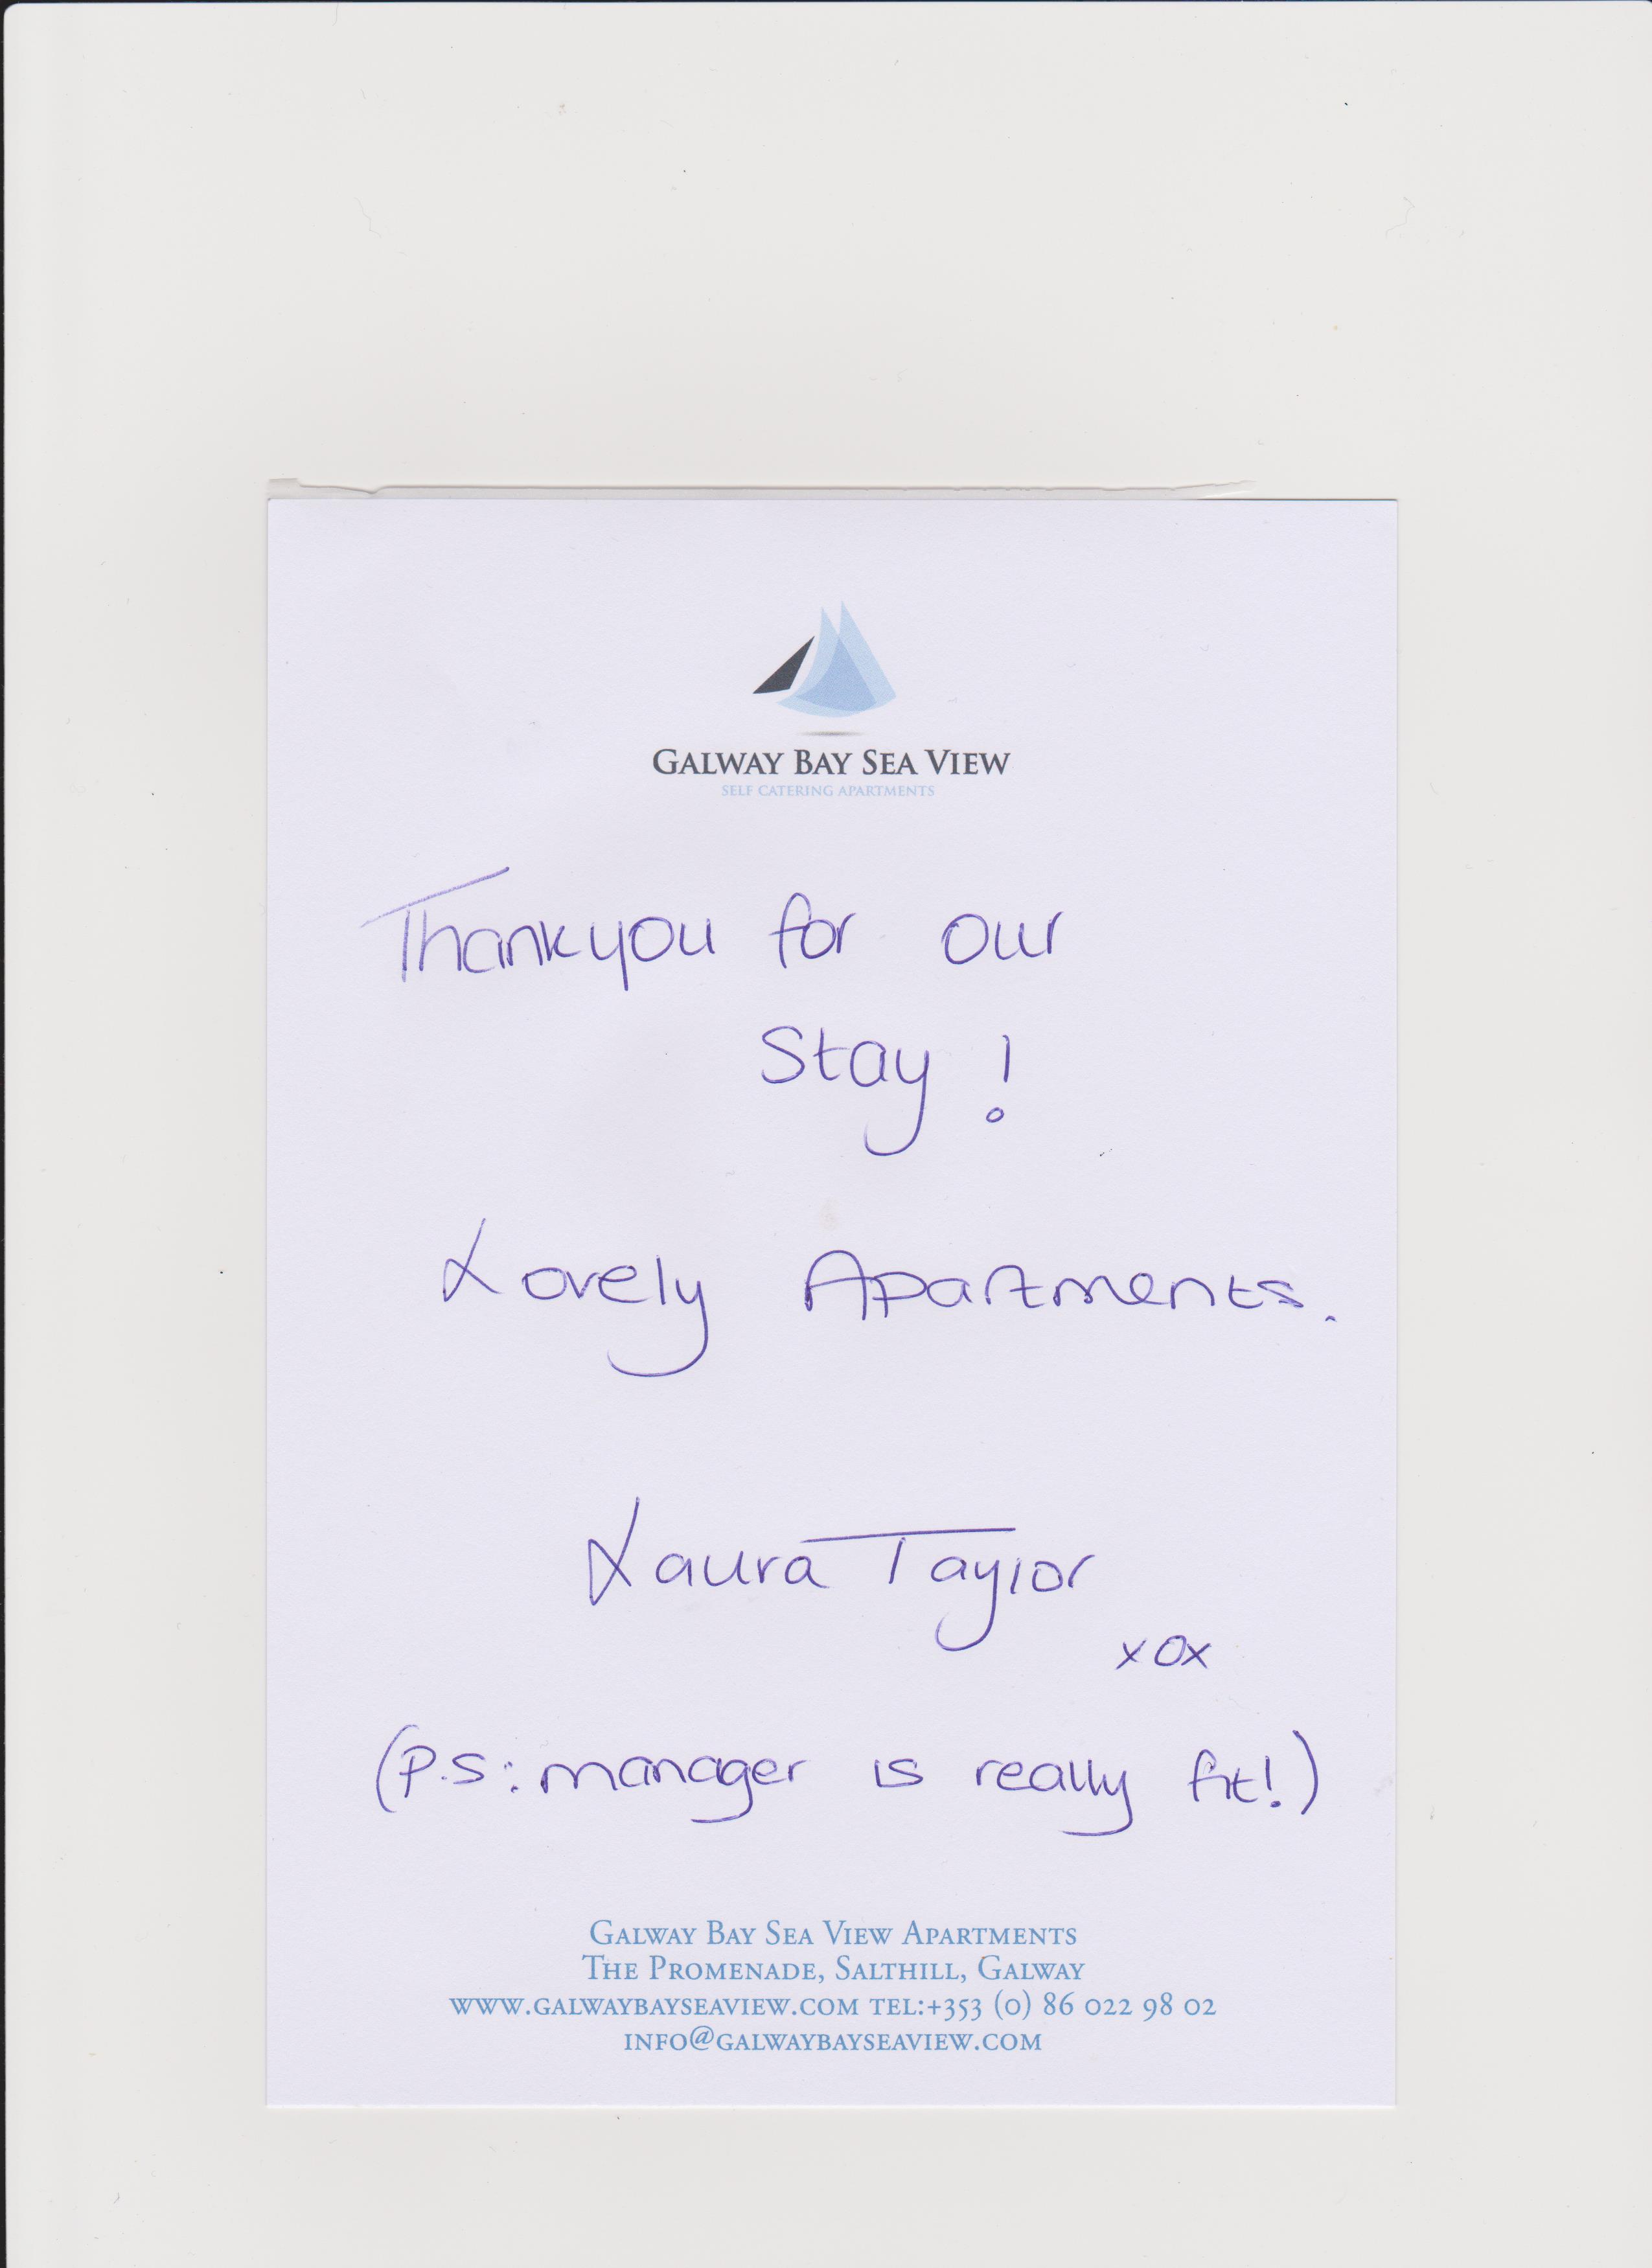 GALWAY BAY SEA VIEW
SELF CATERING APARTMENTS
Thankyou for our
Stay !
Lovely Apartments.
Laura Taylor
xox
(P.S: manager is really fit!)
GALWAY BAY SEA VIEW APARTMENTS
THE PROMENADE, SALTHILL, GALWAY
WWW.GALWAYBAYSEAVIEW.COM TEL:+353 (0) 86 022 98 02
INFO@GALWAYBAYSEAVIEW.COM